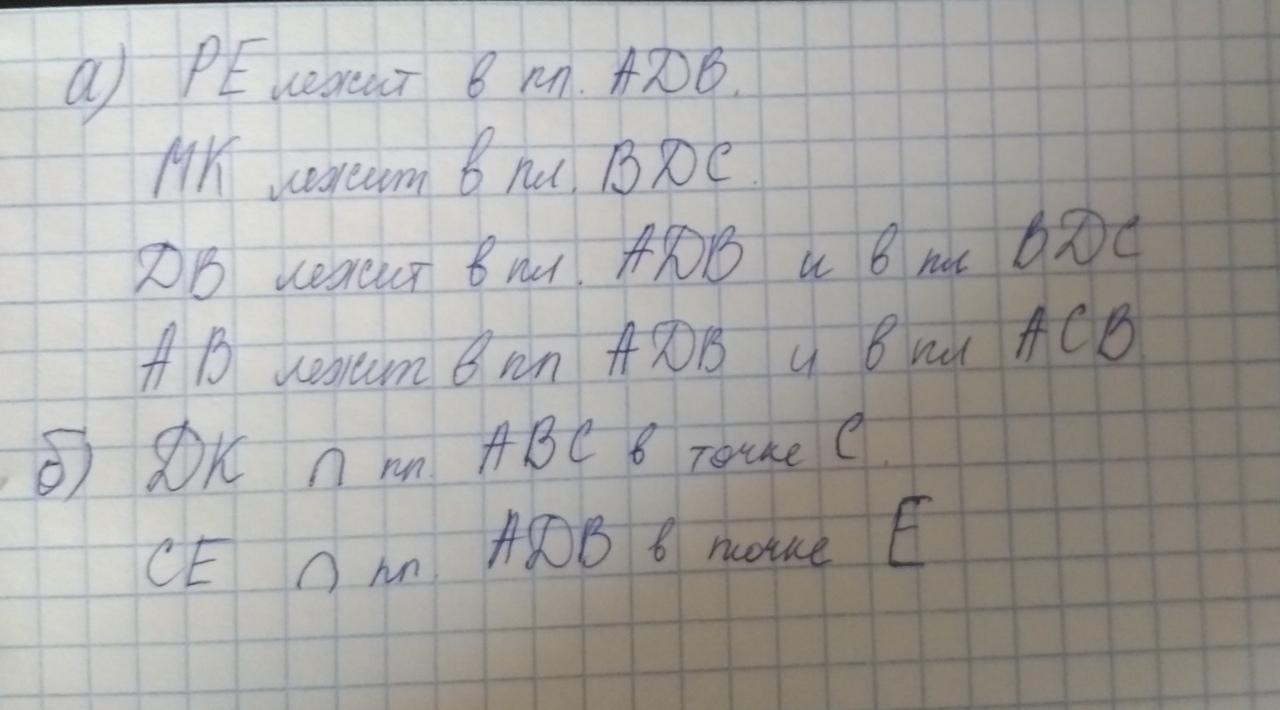 а) PE лежит в пл. ADB.
MK лежит в пл. BDC.
DB лежит в пл. ADB и в пл BDC
AB лежит в пл ADB и в пл ACB
б) DK ∩ пл. ABC в точке C.
CE ∩ пл. ADB в точке E